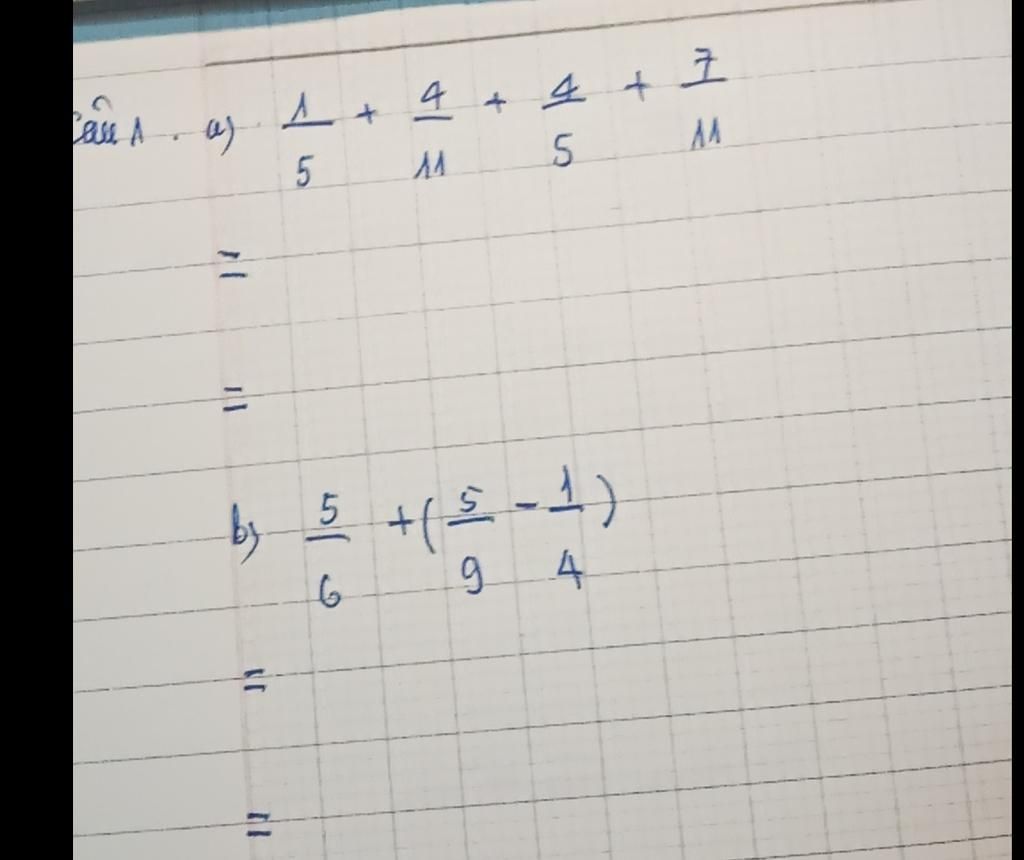 Câu 1. a) 1/5 + 4/11 + 4/5 + 7/11
=
=
b) 5/6 + (5/9 - 1/4)
=
=